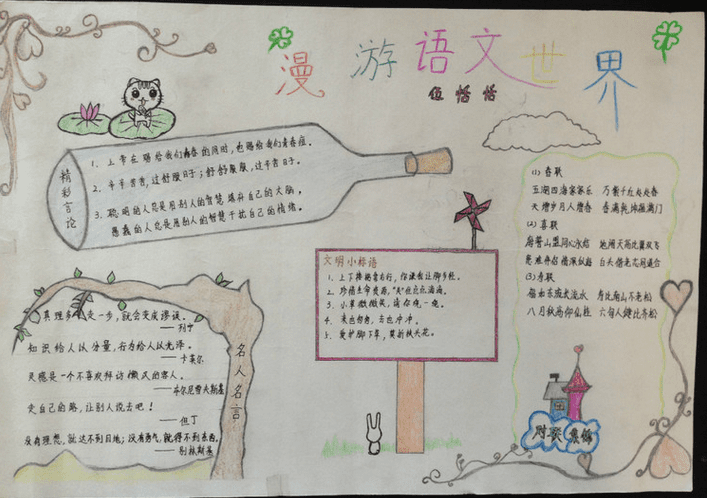 漫游语文世界
伍恬恬
精彩言论
1. 上帝在赐给我们青春的同时,也赐给我们青春痘。
2. 辛辛苦苦,过舒服日子;舒舒服服,过辛苦日子。
3. 聪明的人总是用别人的智慧填补自己的大脑,
愚蠢的人总是用别人的智慧干扰自己的情绪。
文明小标语
1. 上下楼梯靠右行,你谦我让脚步轻。
2. 珍惜生命资源,"关"住点点滴滴。
3. 小草微微笑,请你绕一绕。
4. 来也匆匆,去也冲冲。
5. 爱护脚下草,莫折枝头花。
名人名言
真理多走一步,就会变成谬误。
——列宁
知识给人以分量,行为给人以光泽。
——卡莱尔
灵感是一个不喜欢拜访懒汉的客人。
——车尔尼雪夫斯基
走自己的路,让别人说去吧!
——但丁
没有理想,就达不到目地;没有勇气,就得不到东西。
——别林斯基
(1) 春联
五湖四海家家乐 万紫千红处处春
天增岁月人增寿 春满乾坤福满门
(2) 喜联
海誓山盟同心永结 地阔天高比翼双飞
恩爱伴侣情深似海 白头偕老志同道合
(3) 寿联
福如东海长流水 寿比南山不老松
八月秋高仰仙桂 六旬人健比乔松
对联集锦